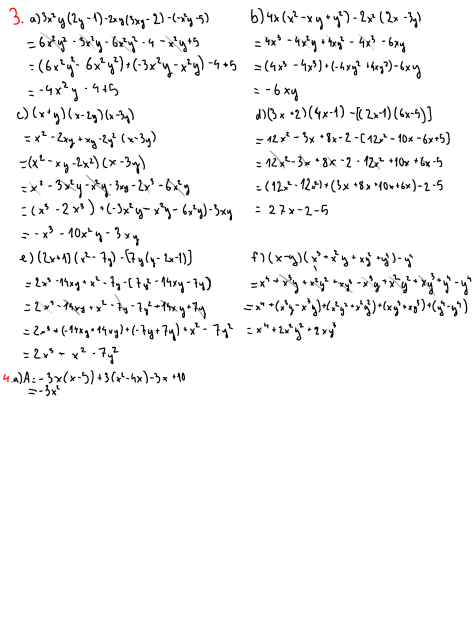 3. a) 3x²y(2y-1)-2xy(3xy-2)-(-x²y-5)
= 6x²y² - 3x²y - 6x²y² - 4 - x²y + 5
= (6x²y² - 6x²y²) + (-3x²y - x²y) - 4 + 5
= -4x²y - 4 + 5
b) 4x(x² - xy + y²) - 2x²(2x - 3y)
= 4x³ - 4x²y + 4xy² - 4x³ - 6xy
= (4x³ - 4x³) + (-4xy² + 4xy²) - 6xy
= -6xy
c) (x+y)(x-2y)(x-3y)
= x² - 2xy + xy - 2y² (x-3y)
= (x² - xy - 2x²)(x - 3y)
= x³ - 3x²y - x²y - 3xy - 2x³ - 6x²y
= (x³ - 2x³) + (-3x²y - x²y - 6x²y) - 3xy
= -x³ - 10x²y - 3xy
d) (3x+2)(4x-1) - [(2x-1)(6x-5)]
= 12x² - 3x + 8x - 2 - [12x² - 10x - 6x + 5]
= 12x² - 3x + 8x - 2 - 12x² + 10x + 6x - 5
= (12x² - 12x²) + (3x + 8x + 10x + 6x) - 2 - 5
= 27x - 2 - 5
e) (2x+1)(x² - 7y) - [7y(y - 2x - 1)]
= 2x³ - 14xy + x² - 7y - [7y² - 14xy - 7y)
= 2x³ - 14xy + x² - 7y - 7y² + 14xy + 7y
= 2x³ + (-14xy + 14xy) + (-7y + 7y) + x² - 7y²
= 2x³ + x² - 7y²
f) (x-y)(x³ + x²y + xy² + y³) - y⁴
= x⁴ + x³y + x²y² + xy³ - x³y + x²y² + xy³ + y⁴ - y⁴
= x⁴ + (x³y - x³y) + (x²y² + x²y²) + (xy³ + xy³) + (y⁴ - y⁴)
= x⁴ + 2x²y² + 2xy³
4. a) A = -3x(x-5) + 3(x² - 4x) - 3x + 10
= -3x²